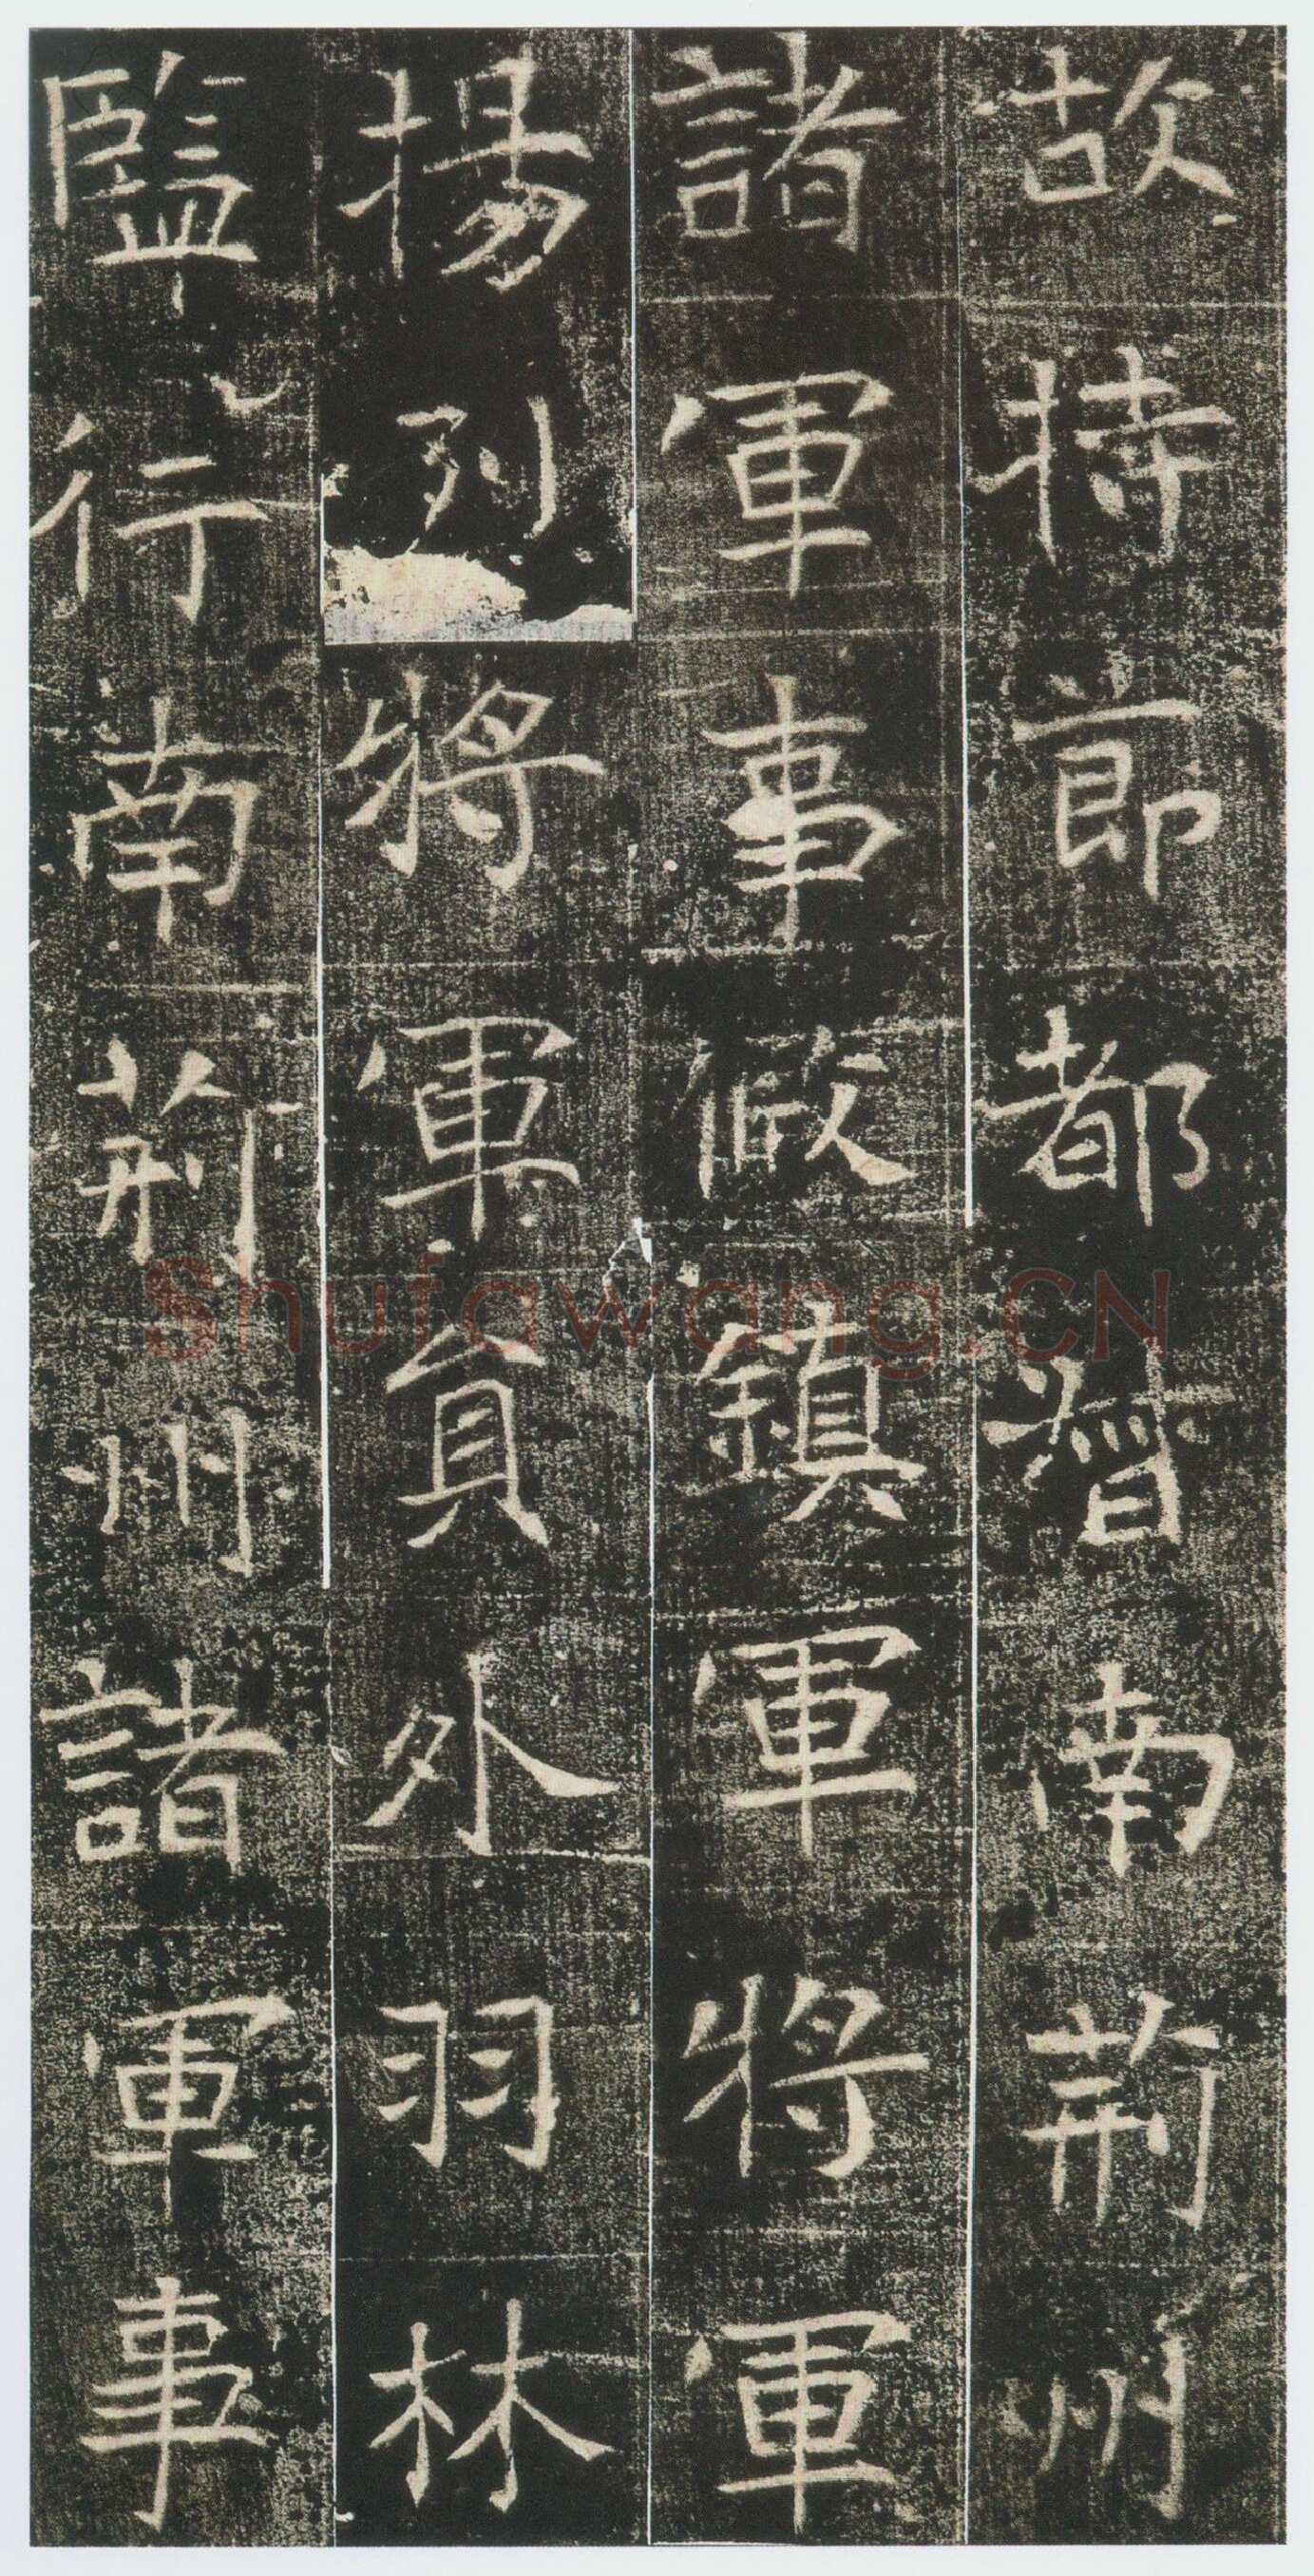 故持節都督南荊州
諸軍事假鎮軍將軍
揚烈將軍員外羽林
監行南荊州諸軍事
Shufawang.CN